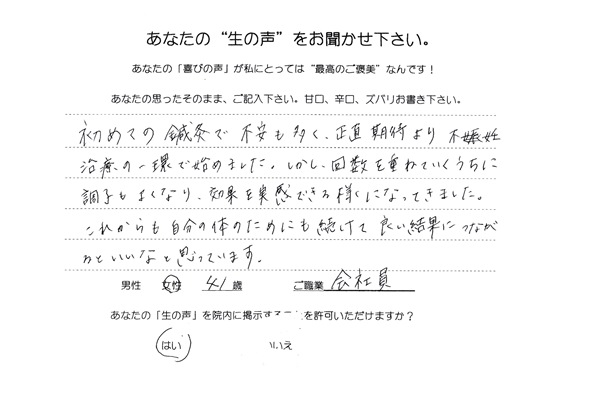 あなたの“生の声”をお聞かせ下さい。
あなたの「喜びの声」が私にとっては“最高のご褒美”なんです！
あなたの思ったそのまま、ご記入下さい。甘口、辛口、ズバリお書き下さい。
初めての鍼灸で不安も多く、正直期待より不妊
治療の一環で始めました。しかし、回数を重ねていくうちに
調子もよくなり、効果を実感できる様になってきました。
これからも自分の体のためにも続けて良い結果につなが
るといいなと思っています。
男性 女性 41歳 ご職業 会社員
あなたの「生の声」を院内に掲示する を許可いただけますか？
はい いいえ